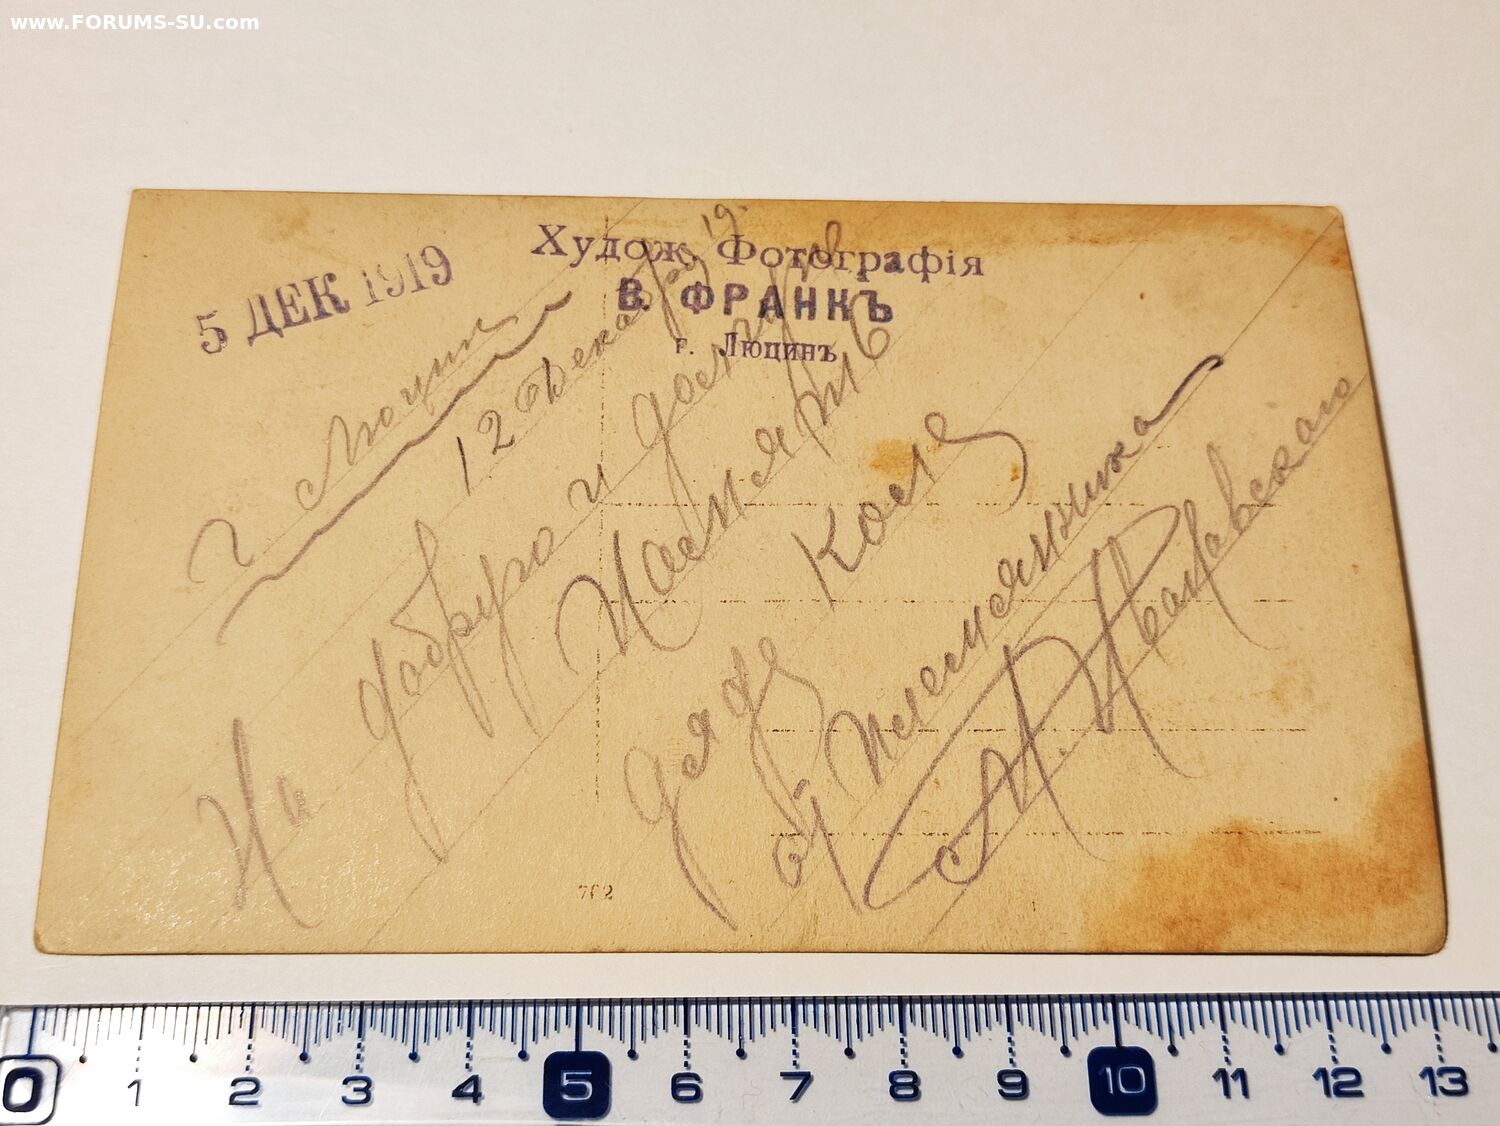 www.FORUMS-SU.com
5 ДЕК 1919
Худож. Фотографія
В. ФРАНКЪ
г. Люцинъ
г Люцин
12 Декабря 19
На добрую и долгую
Память
дяде Коле
от племянника
А.
762
0 1 2 3 4 5 6 7 8 9 10 11 12 13